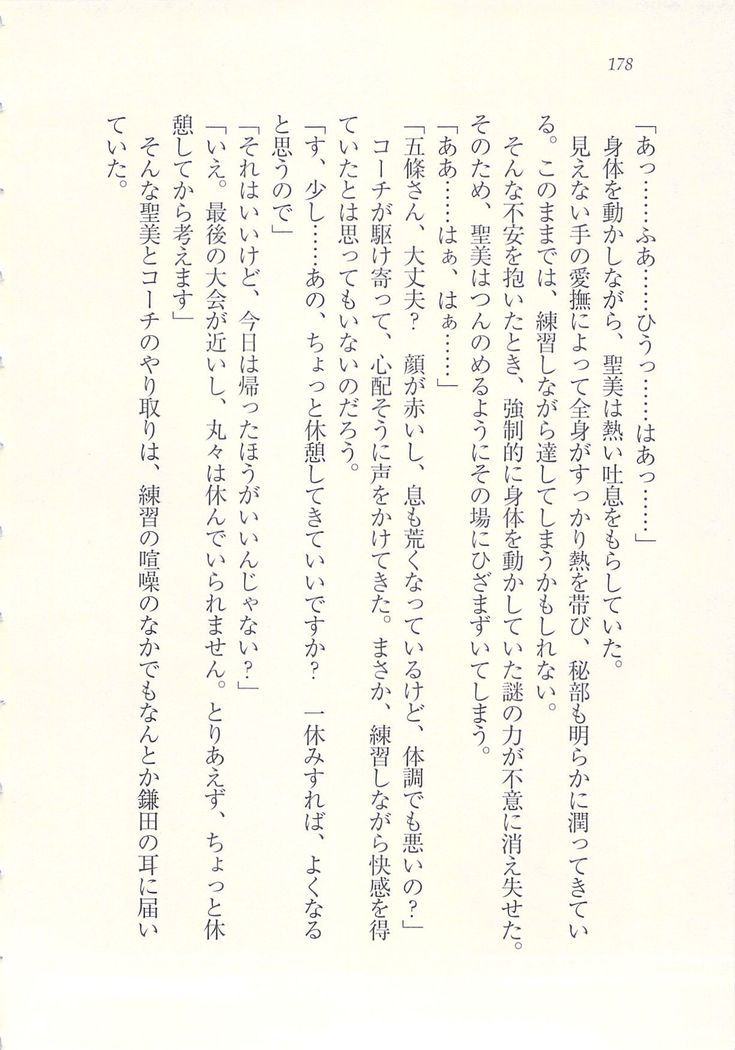 178
「あっ……ふあ……ひうっ……はあっ……」
　身体を動かしながら、聖美は熱い吐息をもらしていた。
　見えない手の愛撫によって全身がすっかり熱を帯び、秘部も明らかに潤ってきてい
る。このままでは、練習しながら達してしまうかもしれない。
　そんな不安を抱いたとき、強制的に身体を動かしていた謎の力が不意に消え失せた。
そのため、聖美はつんのめるようにその場にひざまずいてしまう。
「ああ……はぁ、はぁ……」
「五條さん、大丈夫？　顔が赤いし、息も荒くなっているけど、体調でも悪いの？」
　コーチが駆け寄って、心配そうに声をかけてきた。まさか、練習しながら快感を得
ていたとは思ってもいないのだろう。
「す、少し……あの、ちょっと休憩してきていいですか？　一休みすれば、よくなる
と思うので」
「それはいいけど、今日は帰ったほうがいいんじゃない？」
「いえ。最後の大会が近いし、丸々は休んでいられません。とりあえず、ちょっと休
憩してから考えます」
　そんな聖美とコーチのやり取りは、練習の喧噪のなかでもなんとか鎌田の耳に届い
ていた。